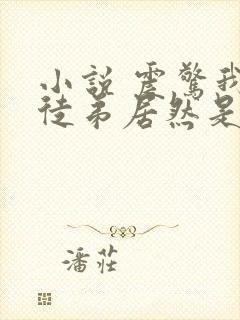 小說 震驚我
徒弟居然是
潘莊